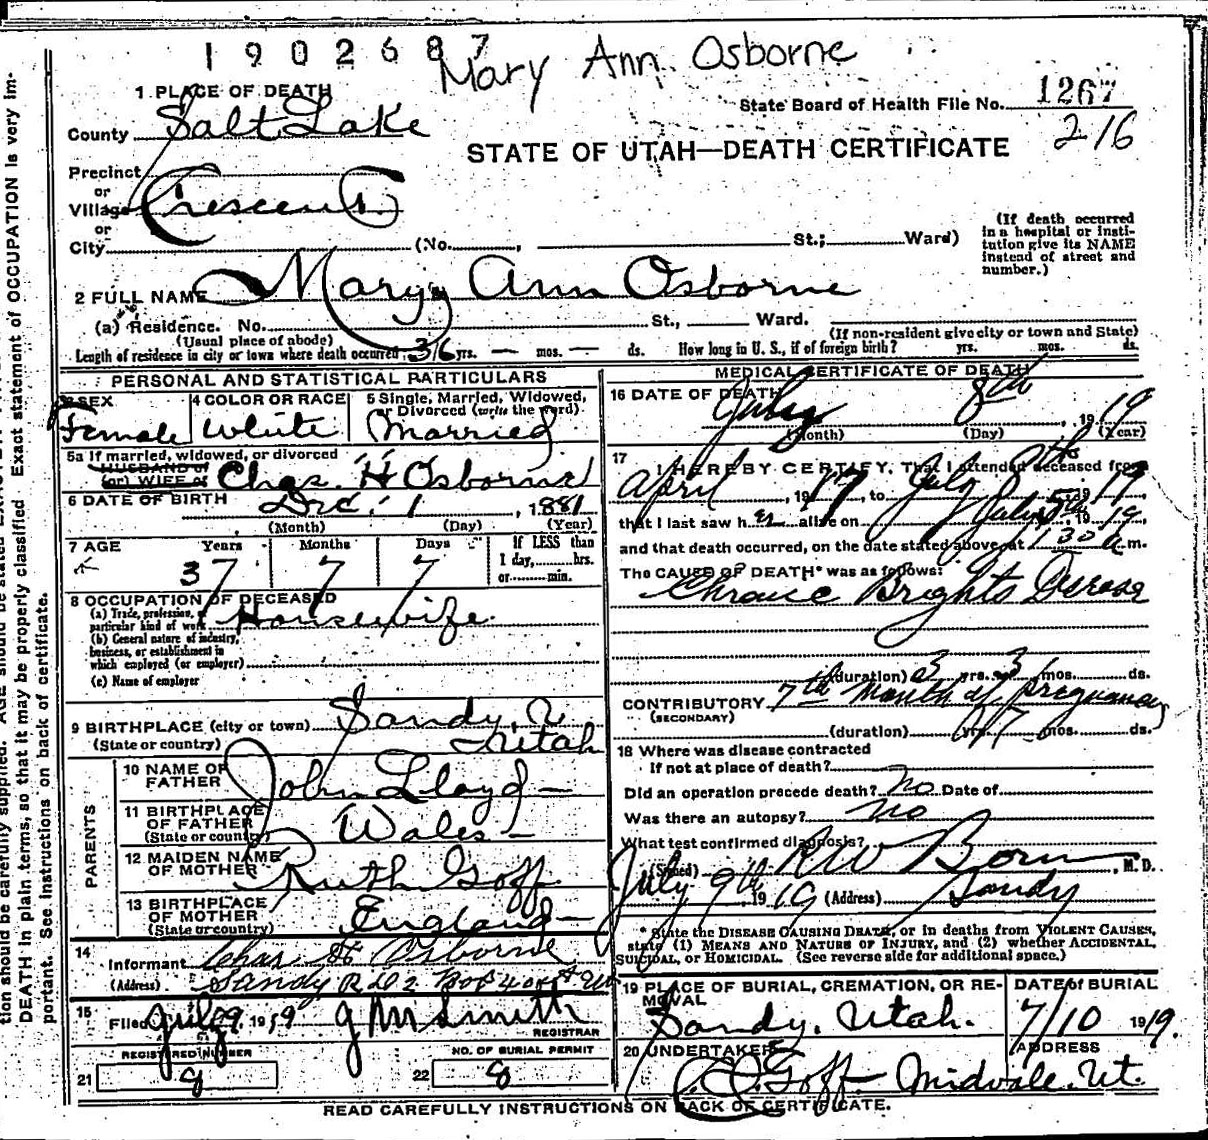 1902687
Mary Ann Osborne
1 PLACE OF DEATH
State Board of Health File No. 1267
County Salt Lake
216
STATE OF UTAH—DEATH CERTIFICATE
Precinct
or
Village Crescent
or
City (No. , St.; Ward)
(If death occurred
in a hospital or insti-
tution give its NAME
instead of street and
number.)
2 FULL NAME Mary Ann Osborne
(a) Residence. No. St., Ward.
(Usual place of abode)
(If non-resident give city or town and State)
Length of residence in city or town where death occurred 36 yrs. — mos. — ds. How long in U. S., if of foreign birth? yrs. mos. ds.
PERSONAL AND STATISTICAL PARTICULARS
3 SEX
Female
4 COLOR OR RACE
White
5 Single, Married, Widowed,
or Divorced (write the word)
Married
5a If married, widowed, or divorced
HUSBAND of
(or) WIFE of Chas. H Osborne
6 DATE OF BIRTH Dec. 1, 1881
(Month) (Day) (Year)
7 AGE Years Months Days If LESS than
1 day, hrs.
or min.
37 7 7
8 OCCUPATION OF DECEASED
(a) Trade, profession, or
particular kind of work Housewife
(b) General nature of industry,
business, or establishment in
which employed (or employer)
(c) Name of employer
9 BIRTHPLACE (city or town) Sandy,
(State or country) Utah
PARENTS
10 NAME OF
FATHER John Lloyd
11 BIRTHPLACE
OF FATHER
(State or country) Wales
12 MAIDEN NAME
OF MOTHER Ruth Goff
13 BIRTHPLACE
OF MOTHER
(State or country) England
14
Informant Chas H Osborne
(Address) Sandy R D 2 Box
15
Filed July 9, 1919 J M Smith
REGISTRAR
REGISTERED NUMBER
21 8
NO. OF BURIAL PERMIT
22 8
MEDICAL CERTIFICATE OF DEATH
16 DATE OF DEATH
July 8th, 1919
(Month) (Day) (Year)
17
I HEREBY CERTIFY, That I attended deceased from
April, 1917, to July 8th 1919,
that I last saw her alive on July 5th, 1919,
and that death occurred, on the date stated above, at 1 30 a m.
The CAUSE OF DEATH* was as follows:
Chronic Brights Disease
(duration) 3 yrs. 3 mos. ds.
CONTRIBUTORY 7th month of pregnancy
(SECONDARY)
(duration) yrs. 7 mos. ds.
18 Where was disease contracted
If not at place of death?
Did an operation precede death? No Date of
Was there an autopsy? No
What test confirmed diagnosis?
(Signed) R W Born, M.D.
July 9th, 1919 (Address) Sandy
* State the DISEASE CAUSING DEATH, or in deaths from VIOLENT CAUSES,
state (1) MEANS AND NATURE OF INJURY, and (2) whether ACCIDENTAL,
SUICIDAL, or HOMICIDAL. (See reverse side for additional space.)
19 PLACE OF BURIAL, CREMATION, OR RE-
MOVAL
Sandy, Utah.
DATE of BURIAL
7/10 1919.
20 UNDERTAKER
Goff
ADDRESS
Midvale, Ut.
READ CAREFULLY INSTRUCTIONS ON BACK OF CERTIFICATE.
tion should be carefully supplied. AGE should be stated
DEATH in plain terms, so that it may be properly classified. Exact statement of OCCUPATION is very im-
portant. See instructions on back of certificate.